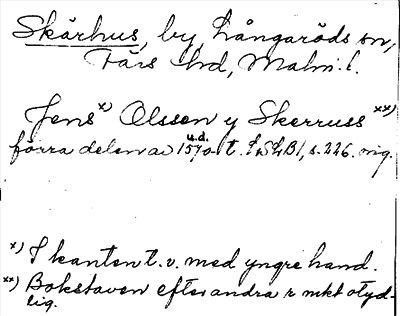 Skårhus, by Långaröds sn,
Färs hd, Malm. l.
Jens x) Olssen y Skerruss xx)
förra delen av 1570- t. u.d. s. 226. orig.
x) I kanten t. v. med yngre hand.
xx) Bokstaven efter andra r mkt otyd-
lig.